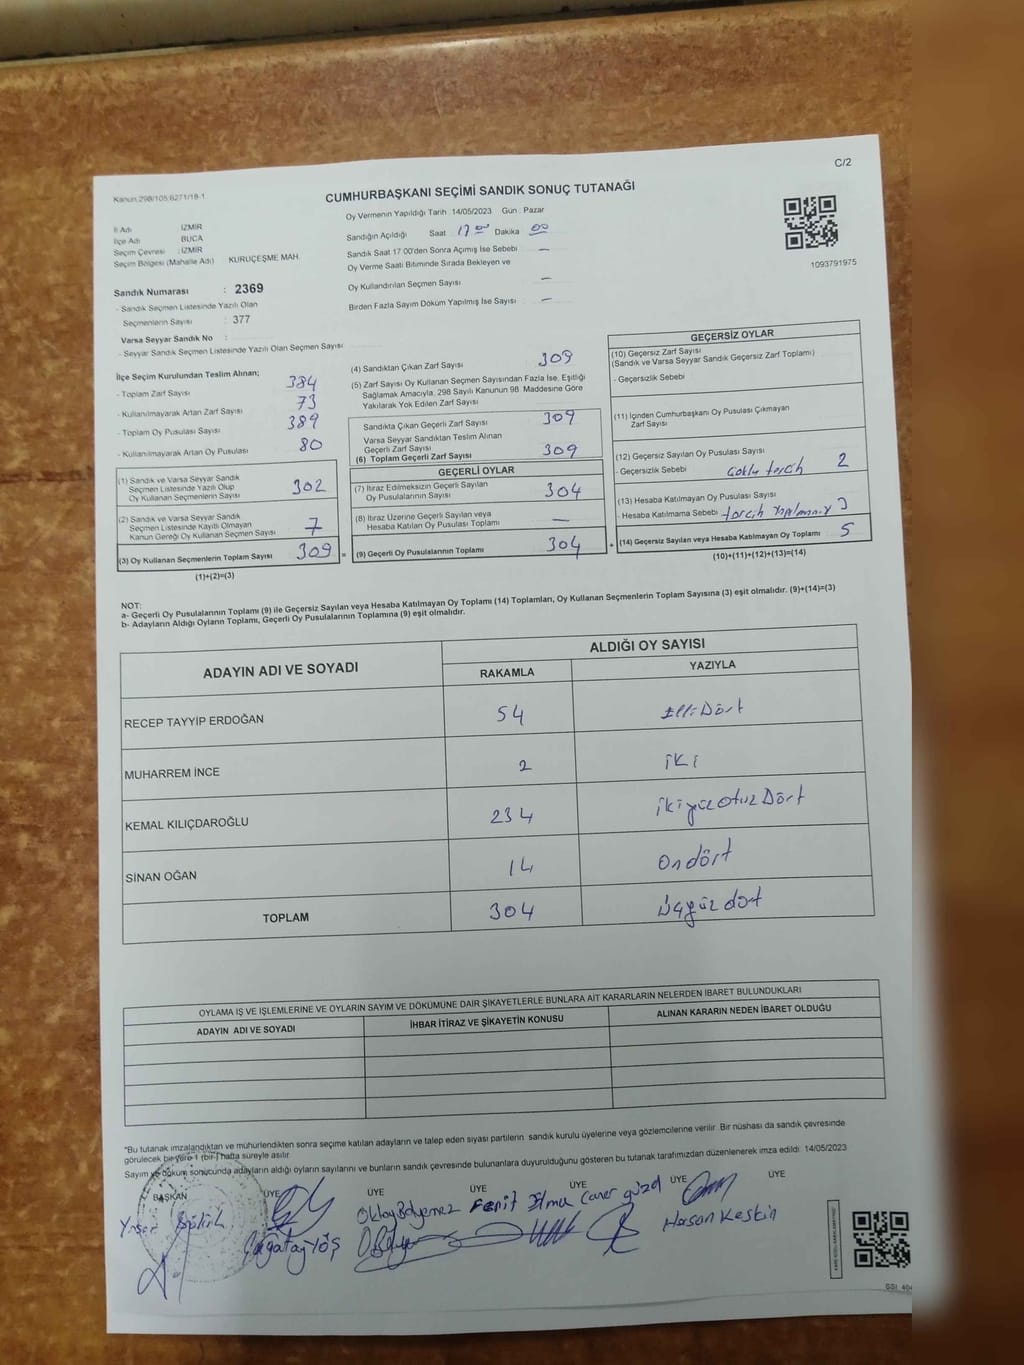 C/2
Kanun:298/105;6271/18-1
CUMHURBAŞKANI SEÇİMİ SANDIK SONUÇ TUTANAĞI
Oy Vermenin Yapıldığı Tarih :14/05/2023 Gün : Pazar
İl Adı : İZMİR
İlçe Adı : BUCA
Seçim Çevresi : İZMİR
Seçim Bölgesi (Mahalle Adı) : KURUÇEŞME MAH.
Sandık Numarası : 2369
- Sandık Seçmen Listesinde Yazılı Olan
Seçmenlerin Sayısı : 377
Varsa Seyyar Sandık No :
- Seyyar Sandık Seçmen Listesinde Yazılı Olan Seçmen Sayısı:
Sandığın Açıldığı Saat : 17 00 Dakika : 00
Sandık Saat 17:00'den Sonra Açılmış İse Sebebi : —
Oy Verme Saati Bitiminde Sırada Bekleyen ve
Oy Kullandırılan Seçmen Sayısı : —
Birden Fazla Sayım Döküm Yapılmış İse Sayısı : —
1093791975
İlçe Seçim Kurulundan Teslim Alınan;
- Toplam Zarf Sayısı : 384
- Kullanılmayarak Artan Zarf Sayısı : 73
- Toplam Oy Pusulası Sayısı : 389
- Kullanılmayarak Artan Oy Pusulası : 80
(1) Sandık ve Varsa Seyyar Sandık
Seçmen Listesinde Yazılı Olup
Oy Kullanan Seçmenlerin Sayısı 302
(2) Sandık ve Varsa Seyyar Sandık
Seçmen Listesinde Kayıtlı Olmayan
Kanun Gereği Oy Kullanan Seçmen Sayısı 7
(3) Oy Kullanan Seçmenlerin Toplam Sayısı 309 =
(1)+(2)=(3)
(4) Sandıktan Çıkan Zarf Sayısı 309
(5) Zarf Sayısı Oy Kullanan Seçmen Sayısından Fazla İse, Eşitliği
Sağlamak Amacıyla, 298 Sayılı Kanunun 98. Maddesine Göre
Yakılarak Yok Edilen Zarf Sayısı
Sandıkta Çıkan Geçerli Zarf Sayısı 309
Varsa Seyyar Sandıktan Teslim Alınan
Geçerli Zarf Sayısı
(6) Toplam Geçerli Zarf Sayısı 309
GEÇERLİ OYLAR
(7) İtiraz Edilmeksizin Geçerli Sayılan
Oy Pusulalarının Sayısı 304
(8) İtiraz Üzerine Geçerli Sayılan veya
Hesaba Katılan Oy Pusulası Toplamı —
(9) Geçerli Oy Pusulalarının Toplamı 304 +
GEÇERSİZ OYLAR
(10) Geçersiz Zarf Sayısı
(Sandık ve Varsa Seyyar Sandık Geçersiz Zarf Toplamı)
- Geçersizlik Sebebi :
(11) İçinden Cumhurbaşkanı Oy Pusulası Çıkmayan
Zarf Sayısı
(12) Geçersiz Sayılan Oy Pusulası Sayısı
- Geçersizlik Sebebi : çoklu tercih 2
(13) Hesaba Katılmayan Oy Pusulası Sayısı
- Hesaba Katılmama Sebebi : tercih 3
(14) Geçersiz Sayılan veya Hesaba Katılmayan Oy Toplamı 5
(10)+(11)+(12)+(13)=(14)
NOT:
a- Geçerli Oy Pusulalarının Toplamı (9) ile Geçersiz Sayılan veya Hesaba Katılmayan Oy Toplamı (14) Toplamları, Oy Kullanan Seçmenlerin Toplam Sayısına (3) eşit olmalıdır. (9)+(14)=(3)
b- Adayların Aldığı Oyların Toplamı, Geçerli Oy Pusulalarının Toplamına (9) eşit olmalıdır.
ADAYIN ADI VE SOYADI ALDIĞI OY SAYISI
RAKAMLA YAZIYLA
RECEP TAYYİP ERDOĞAN 54 Elli Dört
MUHARREM İNCE 2 iki
KEMAL KILIÇDAROĞLU 234 ikiyüz Otuz Dört
SİNAN OĞAN 14 Ondört
TOPLAM 304 üçyüz dört
OYLAMA İŞ VE İŞLEMLERİNE VE OYLARIN SAYIM VE DÖKÜMÜNE DAİR ŞİKAYETLERLE BUNLARA AİT KARARLARIN NELERDEN İBARET BULUNDUKLARI
ADAYIN ADI VE SOYADI İHBAR İTİRAZ VE ŞİKAYETİN KONUSU ALINAN KARARIN NEDEN İBARET OLDUĞU
*Bu tutanak imzalandıktan ve mühürlendikten sonra seçime katılan adayların ve talep eden siyasi partilerin sandık kurulu üyelerine veya gözlemcilerine verilir. Bir nüshası da sandık çevresinde
görülecek bir yere 1 (bir) hafta süreyle asılır.
Sayım ve döküm sonucunda adayların aldığı oyların sayılarını ve bunların sandık çevresinde bulunanlara duyurulduğunu gösteren bu tutanak tarafımızdan düzenlenerek imza edildi: 14/05/2023
BAŞKAN ÜYE ÜYE ÜYE ÜYE ÜYE ÜYE
Yaşar
Çağatay YÖŞ
Oktay Bolyemez
Ferit Elma
Caner güzel
Hasan Keskin